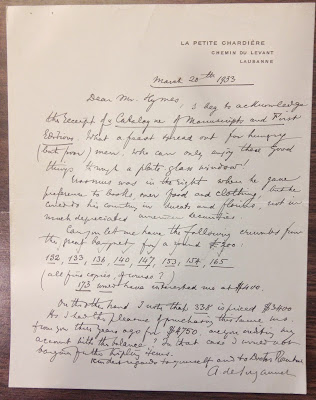 LA PETITE CHARDIÈRE
CHEMIN DU LEVANT
LAUSANNE
March 20th 1933
Dear Mr. Hymes, I beg to acknowledge
the receipt of Catalogue of Manuscripts and First
Editions. What a feast spread out for hungry
(but poor) men, who can only enjoy these good
things through a plate-glass window!
Erasmus was in the right when he gave
preference to books, over food and clothing, but he
in his country, in and florins, not in
much depreciated American securities.
Can you let me have the following crumbs from
the great banquet, for a round $200:
132, 133, 136, 140, 147, 153, 154, 165
(all fine copies, of course?)
173 have interested me at $400.
On the other hand I note that 338 is priced $3400
As I had the pleasure of purchasing this same
from you three years ago for $4750, are you crediting my
account with the balance? In that case I
bargain for the items.
Kindest regards to yourself and to Doctor
A de Suzannet